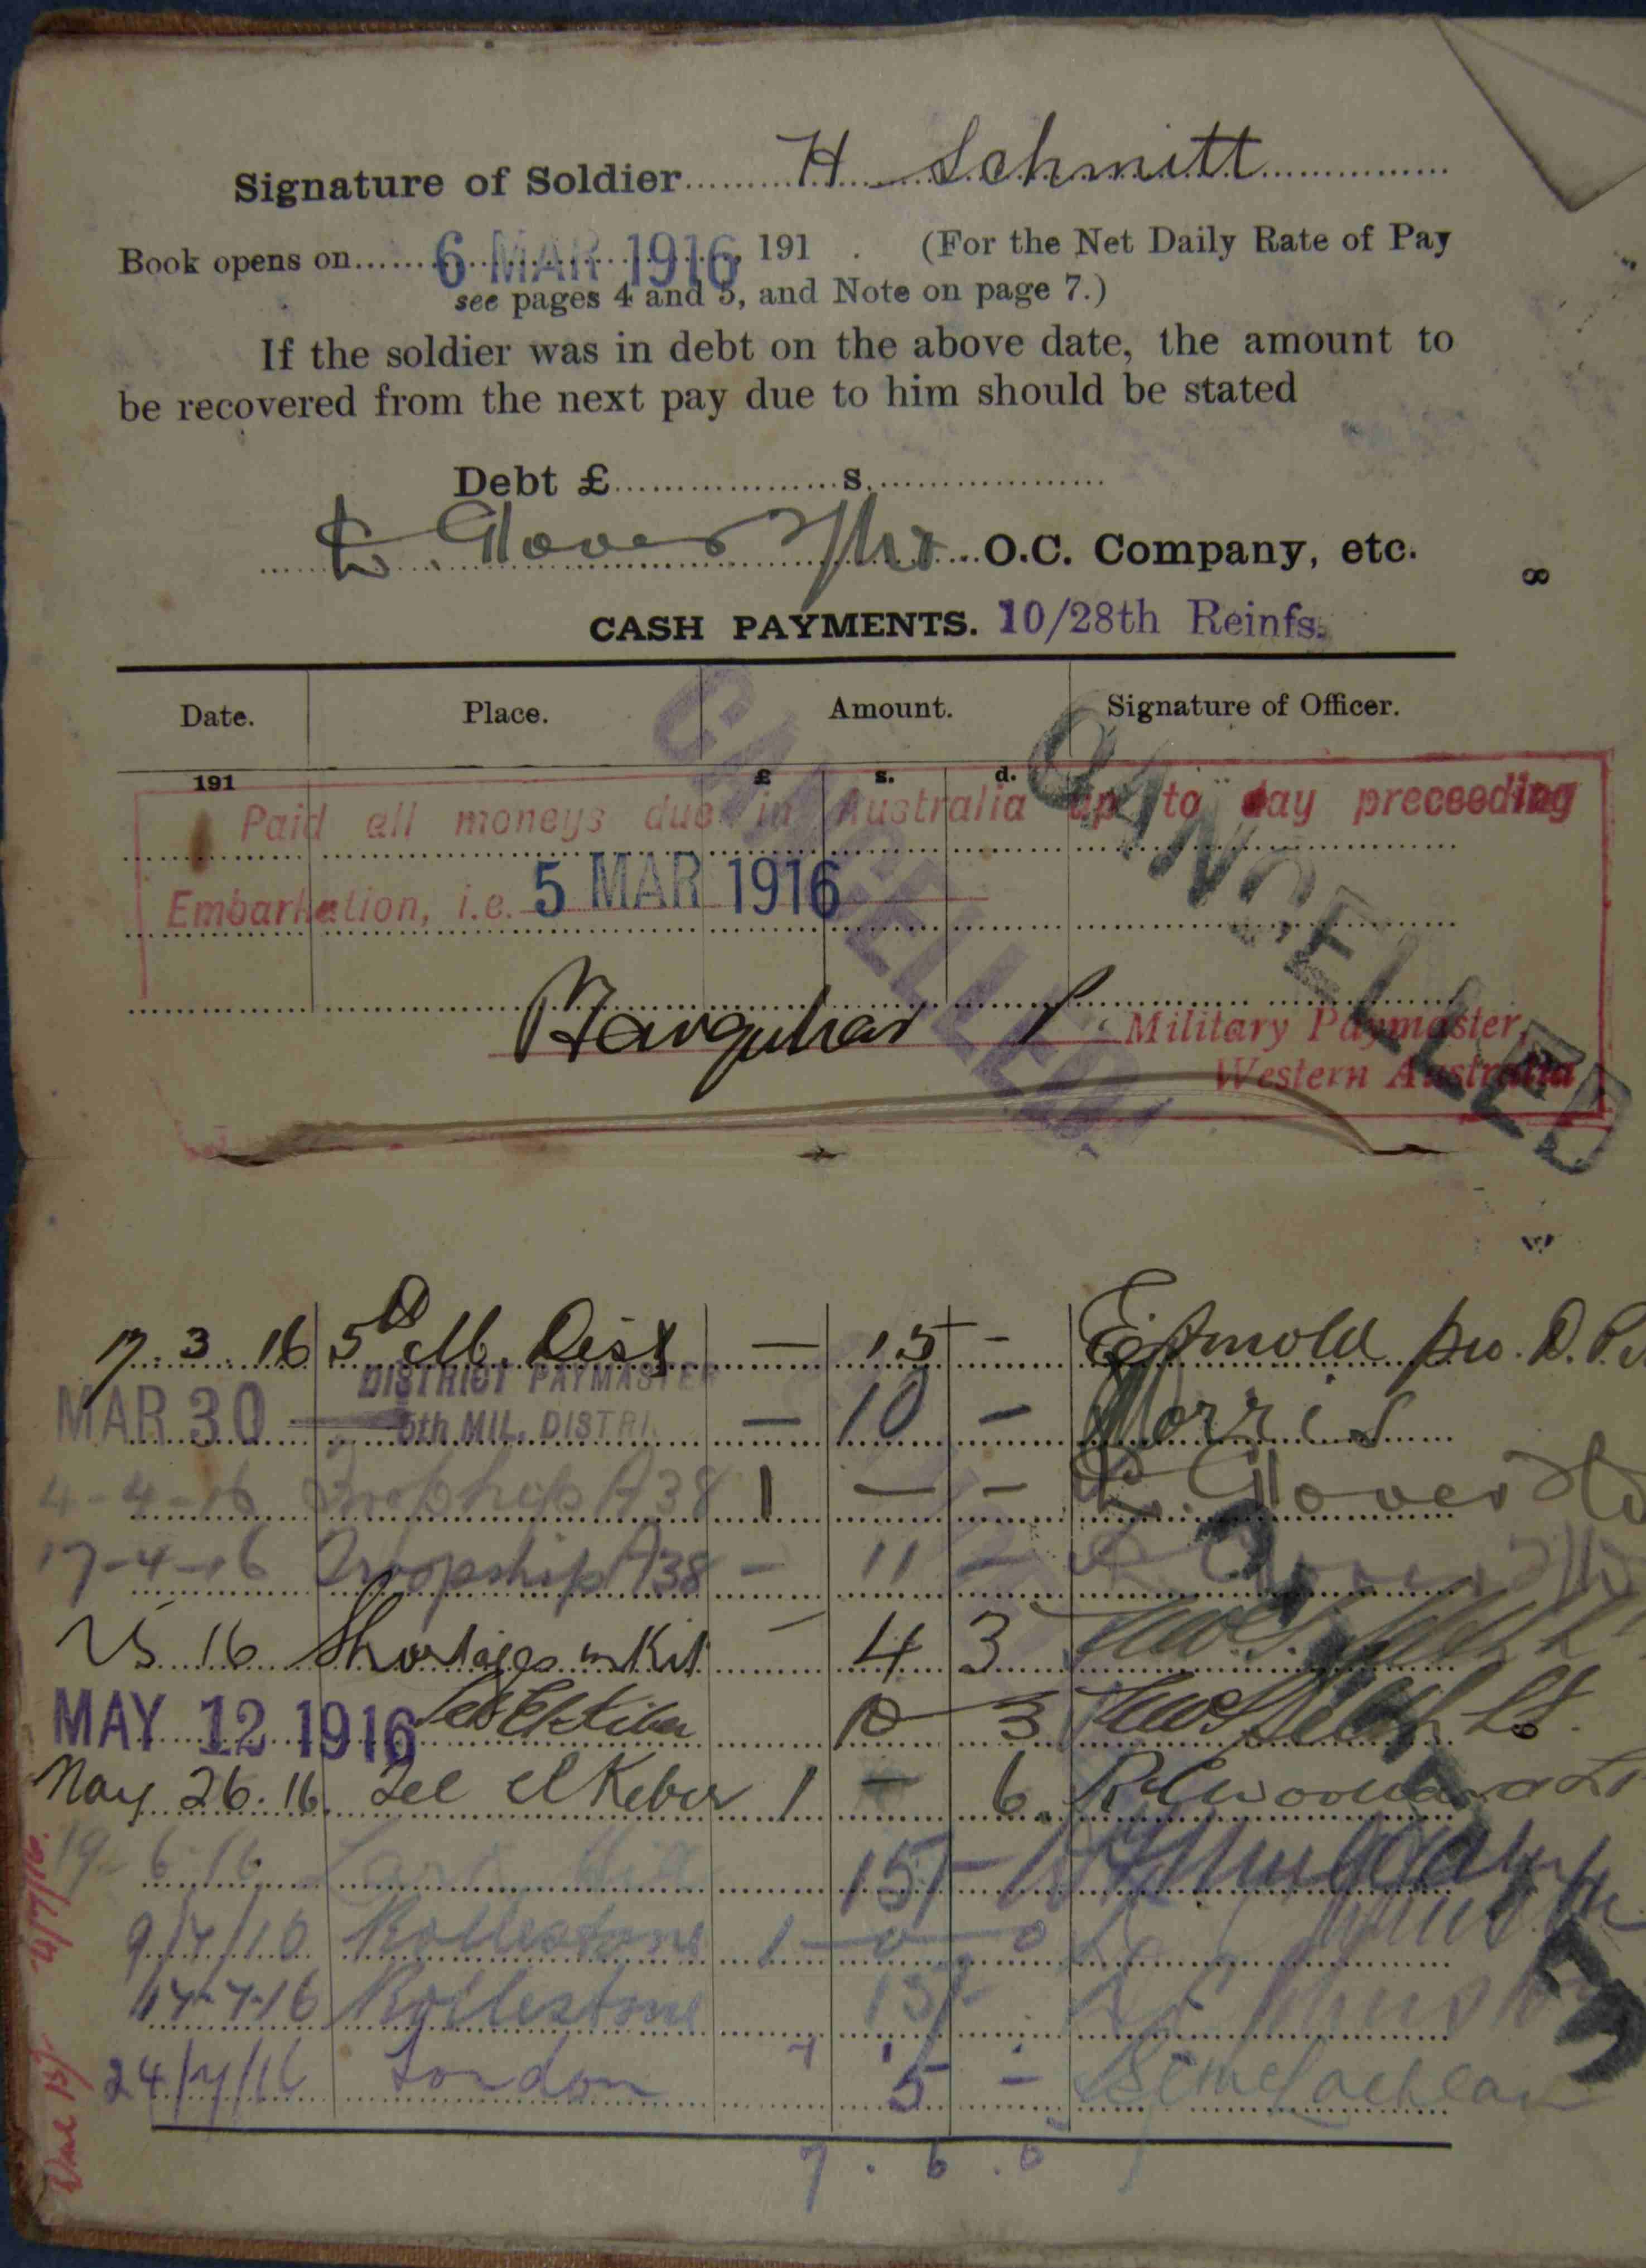 Signature of Soldier H Schmitt
Book opens on 6 MAR 1916, 191 . (For the Net Daily Rate of Pay
see pages 4 and 5, and Note on page 7.)
If the soldier was in debt on the above date, the amount to
be recovered from the next pay due to him should be stated
Debt £ s.
Glover O.C. Company, etc.
8
CASH PAYMENTS. 10/28th Reinfs.
Date. Place. Amount. Signature of Officer.
191 £ s. d.
CANCELLED
CANCELLED
Paid all moneys due in Australia up to day preceeding
Embarkation, i.e. 5 MAR 1916
Farquhar
Military Paymaster,
Western Australia
17.3.16 5th M. Dist — 15 -
DISTRICT PAYMASTER
MAR 30 5th MIL. DISTRI — 10 - Morris
4-4-16 Troopship A38 1 — - Glover
17-4-16 Troopship A38 - 11 - Glover
16 Shortages in Kit - 4 3
MAY 12 1916 Tel El Kiber 10 3
May 26.16. Tel el Keber 1 — 6. Woodward Lt
19-6-16 15/-
9/7/16 Rollestone 1 - 0 - 0
17-7-16 Rollestone 15/-
24/7/16 London 5 - McLachlan
7 . 6 . 0
4/7/16.